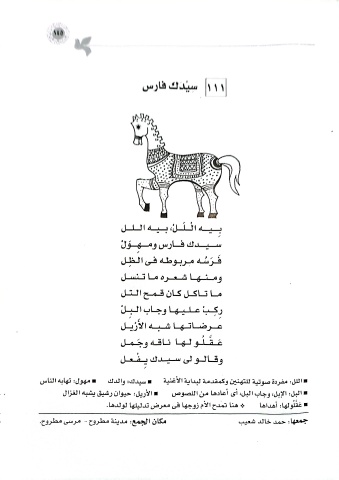 ١١٥
١١١ سيّدك فارس
بِيه الْلَلْ، بيه اللل
سيدك فارس ومهِوَلْ
فَرَسُه مربوطه فى الظِل
ومنها شعره ما تنسل
ما تاكل كان قمح التل
ركِبْ عليها وجاب البِلْ
عرضاتها شبه الأرْيل
عَقّلُو لها ناقه وجمل
وقالو لى سيدك يفْعل
■ اللل: مفردة صوتية للتهنين وكمقدمة لبداية الأغنية ■ سيدك: والدك ■ مهول: تهابه الناس
■ البل: الإبل، وجاب البل، أى أعادها من اللصوص ■ الأريل: حيوان رشيق يشبه الغزال
■ عَقّلُولها: أهداها ❖ هنا تمدح الأم زوجها فى معرض تدليلها لولدها.
جمعها: حمد خالد شعيب مكان الجمع: مدينة مطروح - مرسى مطروح.